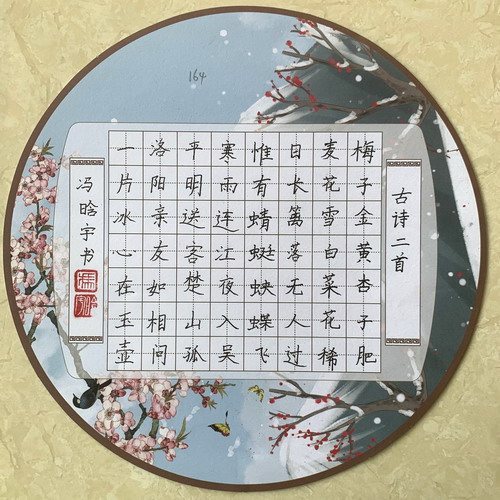 164
古诗二首
梅子金黄杏子肥
麦花雪白菜花稀
日长篱落无人过
惟有蜻蜓蛱蝶飞
寒雨连江夜入吴
平明送客楚山孤
洛阳亲友如相问
一片冰心在玉壶
冯晗宇书